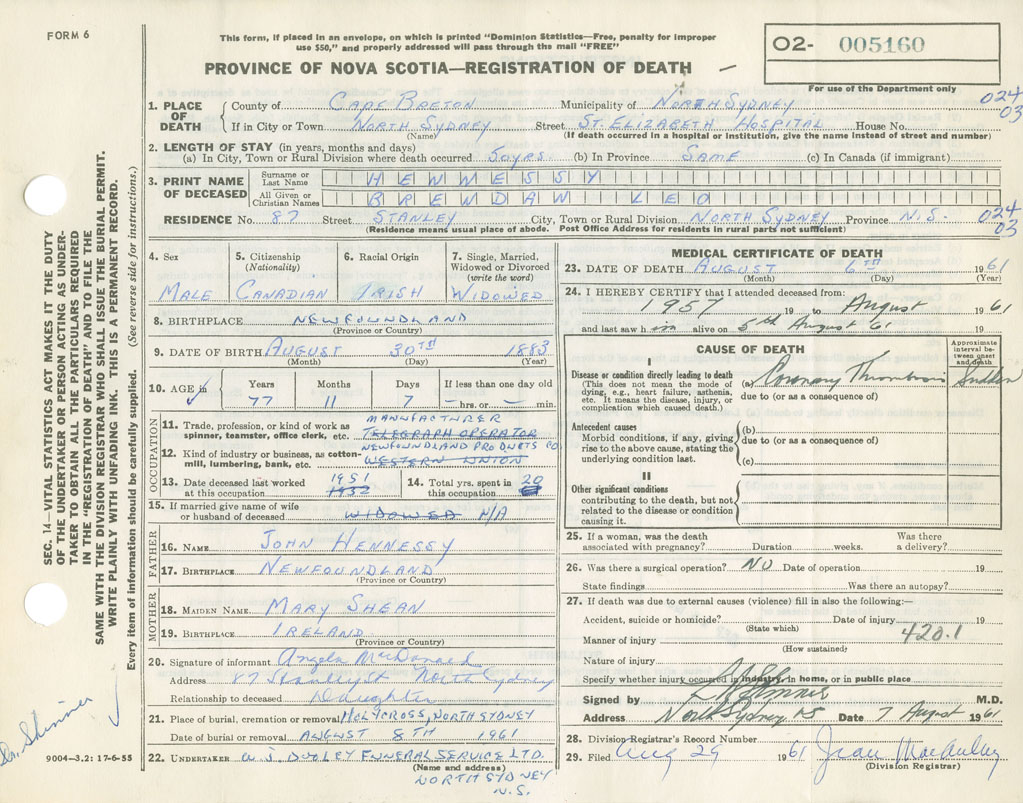 FORM 6
This form, if placed in an envelope, on which is printed "Dominion Statistics—Free, penalty for improper
use $50," and properly addressed will pass through the mail "FREE"
02- 005160
PROVINCE OF NOVA SCOTIA—REGISTRATION OF DEATH
For use of the Department only
024
03
1. PLACE OF DEATH { County of CAPE BRETON Municipality of NORTH SYDNEY
If in City or Town NORTH SYDNEY Street ST. ELIZABETH HOSPITAL House No.
(Name) (If death occurred in a hospital or institution, give the name instead of street and number)
2. LENGTH OF STAY (in years, months and days)
(a) In City, Town or Rural Division where death occurred 50 YRS. (b) In Province SAME (c) In Canada (if immigrant)
3. PRINT NAME OF DECEASED { Surname or Last Name HENNESSY
All Given or Christian Names BRENDAN LEO
RESIDENCE No. 87 Street STANLEY City, Town or Rural Division NORTH SYDNEY Province N.S.
024
03
(Residence means usual place of abode. Post Office Address for residents in rural parts not sufficient)
4. Sex
MALE
5. Citizenship
(Nationality)
CANADIAN
6. Racial Origin
IRISH
7. Single, Married,
Widowed or Divorced
(write the word)
WIDOWED
8. BIRTHPLACE NEWFOUNDLAND
(Province or Country)
9. DATE OF BIRTH AUGUST 30TH 1883
(Month) (Day) (Year)
10. AGE in Years Months Days If less than one day old
77 11 7 — hrs. or — min.
OCCUPATION
MANUFACTURER
11. Trade, profession, or kind of work as
spinner, teamster, office clerk, etc. TELEGRAPH OPERATOR
NEWFOUNDLAND PRODUCTS CO
12. Kind of industry or business, as cotton-
mill, lumbering, bank, etc. WESTERN UNION
13. Date deceased last worked
at this occupation 1951 1932
14. Total yrs. spent in
this occupation 20
15. If married give name of wife
or husband of deceased WIDOWED N/A
FATHER
16. NAME JOHN HENNESSY
17. BIRTHPLACE NEWFOUNDLAND
(Province or Country)
MOTHER
18. MAIDEN NAME MARY SHEAN
19. BIRTHPLACE IRELAND
(Province or Country)
20. Signature of informant Angela McDonald
Address 87 Stanley St North Sydney
Relationship to deceased Daughter
21. Place of burial, cremation or removal HOLY CROSS, NORTH SYDNEY
Date of burial or removal AUGUST 8TH 1961
22. UNDERTAKER W. J. DOOLEY FUNERAL SERVICE LTD.
(Name and address)
NORTH SYDNEY
N.S.
MEDICAL CERTIFICATE OF DEATH
23. DATE OF DEATH AUGUST 6TH 1961
(Month) (Day) (Year)
24. I HEREBY CERTIFY that I attended deceased from:
1957 19 to August 1961
and last saw him alive on 5th August 61 19
CAUSE OF DEATH
Approximate interval between onset and death
I
Disease or condition directly leading to death
(This does not mean the mode of
dying, e.g., heart failure, asthenia,
etc. It means the disease, injury, or
complication which caused death.)
(a) Coronary Thrombosis Sudden
due to (or as a consequence of)
Antecedent causes
Morbid conditions, if any, giving
rise to the above cause, stating the
underlying condition last.
(b)
due to (or as a consequence of)
(c)
II
Other significant conditions
contributing to the death, but not
related to the disease or condition
causing it.
25. If a woman, was the death
associated with pregnancy? Duration weeks. Was there
a delivery?
26. Was there a surgical operation? NO Date of operation 19
State findings Was there an autopsy?
27. If death was due to external causes (violence) fill in also the following:—
Accident, suicide or homicide? Date of injury 19
(State which)
420.1
Manner of injury
(How sustained)
Nature of injury
Specify whether injury occurred in industry, in home, or in public place
Signed by M.D.
Address North Sydney NS Date 7 August 1961
28. Division Registrar's Record Number
29. Filed Aug 29 1961 Jean MacAulay
(Division Registrar)
SEC. 14—VITAL STATISTICS ACT MAKES IT THE DUTY
OF THE UNDERTAKER OR PERSON ACTING AS UNDER-
TAKER TO OBTAIN ALL THE PARTICULARS REQUIRED
IN THE "REGISTRATION OF DEATH" AND TO FILE THE
SAME WITH THE DIVISION REGISTRAR WHO SHALL ISSUE THE BURIAL PERMIT.
WRITE PLAINLY WITH UNFADING INK. THIS IS A PERMANENT RECORD.
Every item of information should be carefully supplied. (See reverse side for instructions.)
Dr. Skinner
9004—3.2: 17-6-55